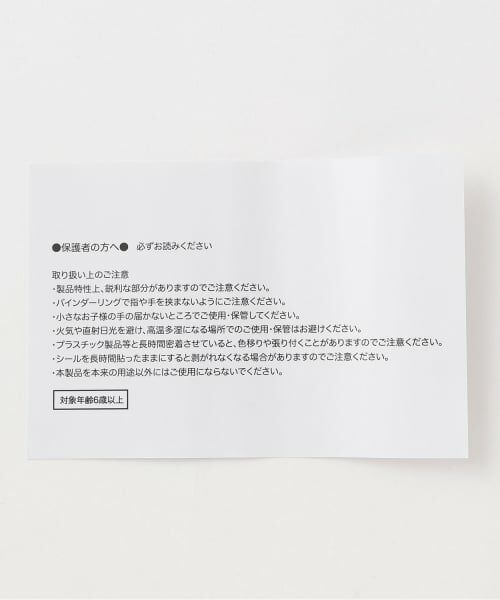 ●保護者の方へ● 必ずお読みください
取り扱い上のご注意
・製品特性上、鋭利な部分がありますのでご注意ください。
・バインダーリングで指や手を挟まないようにご注意ください。
・小さなお子様の手の届かないところでご使用・保管してください。
・火気や直射日光を避け、高温多湿になる場所でのご使用・保管はお避けください。
・プラスチック製品等と長時間密着させていると、色移りや張り付くことがありますのでご注意ください。
・シールを長時間貼ったままにすると剥がれなくなる場合がありますのでご注意ください。
・本製品を本来の用途以外にはご使用にならないでください。
対象年齢6歳以上